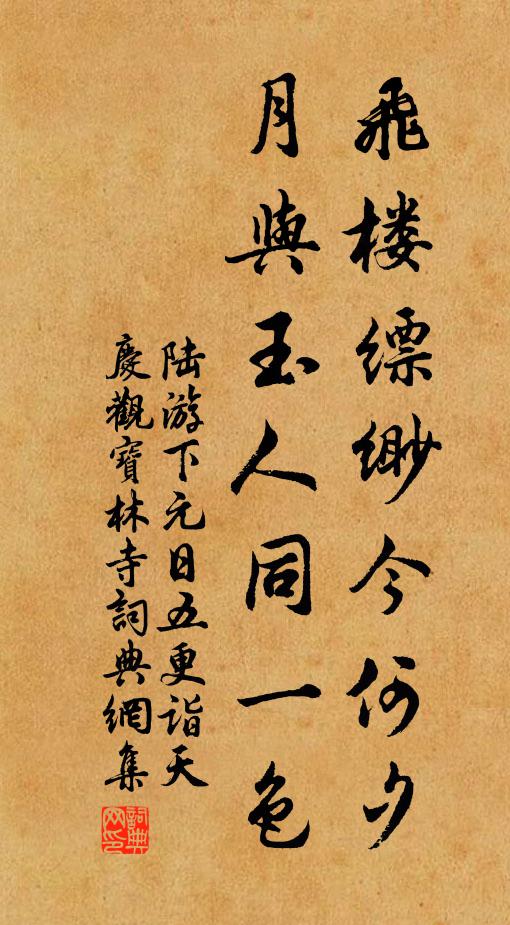 飛楼縹緲今何夕
月與玉人同一色
陆游下元日五更诣天
慶觀寶林寺詞典網集
詞典网印